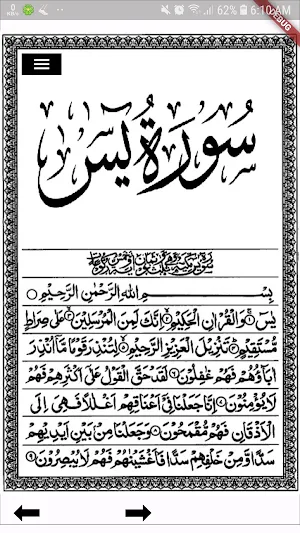 62% 6:10 AM
DEBUG
سُورَةُ يٰسٓ
بِسْمِ اللهِ الرَّحْمٰنِ الرَّحِيْمِ
يٰسٓ ۚ وَالْقُرْاٰنِ الْحَكِيْمِ ۙ اِنَّكَ لَمِنَ الْمُرْسَلِيْنَ ۙ عَلٰى صِرَاطٍ
مُّسْتَقِيْمٍ ؕ تَنْزِيْلَ الْعَزِيْزِ الرَّحِيْمِ ۙ لِتُنْذِرَ قَوْمًا مَّاۤ اُنْذِرَ
اٰبَآؤُهُمْ فَهُمْ غٰفِلُوْنَ ۟ لَقَدْ حَقَّ الْقَوْلُ عَلٰۤى اَكْثَرِهِمْ فَهُمْ
لَا يُؤْمِنُوْنَ ۟ اِنَّا جَعَلْنَا فِيْۤ اَعْنَاقِهِمْ اَغْلٰلًا فَهِيَ اِلَى
الْاَذْقَانِ فَهُمْ مُّقْمَحُوْنَ ۟ وَجَعَلْنَا مِنْۢ بَيْنِ اَيْدِيْهِمْ
سَدًّا وَّمِنْ خَلْفِهِمْ سَدًّا فَاَغْشَيْنٰهُمْ فَهُمْ لَا يُبْصِرُوْنَ ۟